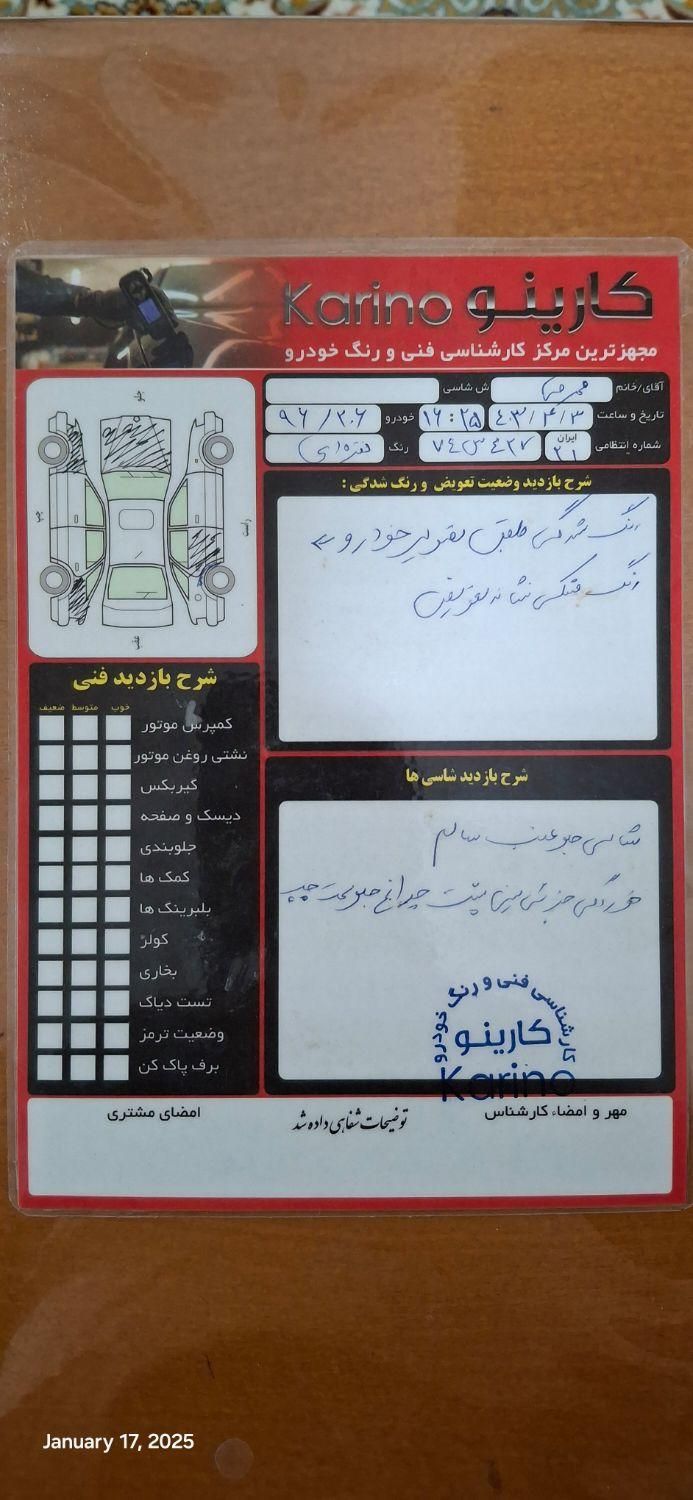 Karino کارینو
مجهزترین مرکز کارشناسی فنی و رنگ خودرو
آقای/خانم ش شاسی
تاریخ و ساعت ٤٠٣/٤/٣ ١٦:٢٥ خودرو ٢٠٦/ ٩٦
شماره انتظامی ایران ٢١ ٧٤س٤٢٧ رنگ نقره‌ای
جلو
چپ
راست
عقب
شرح بازدید وضعیت تعویض و رنگ شدگی :
رنگ شدگی طبق تصویر خودرو ←
رنگ مشکی نشانه تعویض
شرح بازدید فنی
خوب متوسط ضعیف
کمپرس موتور
نشتی روغن موتور
گیربکس
دیسک و صفحه
جلوبندی
کمک ها
بلبرینگ ها
کولر
بخاری
تست دیاگ
وضعیت ترمز
برف پاک کن
شرح بازدید شاسی ها
شاسی جلو عقب سالم
خوردگی جزئی سینی پشت چراغ جلو سمت چپ
کارشناسی فنی و رنگ خودرو
کارینو
Karino
مهر و امضاء کارشناس
توضیحات شفاهی داده شد
امضای مشتری
January 17, 2025